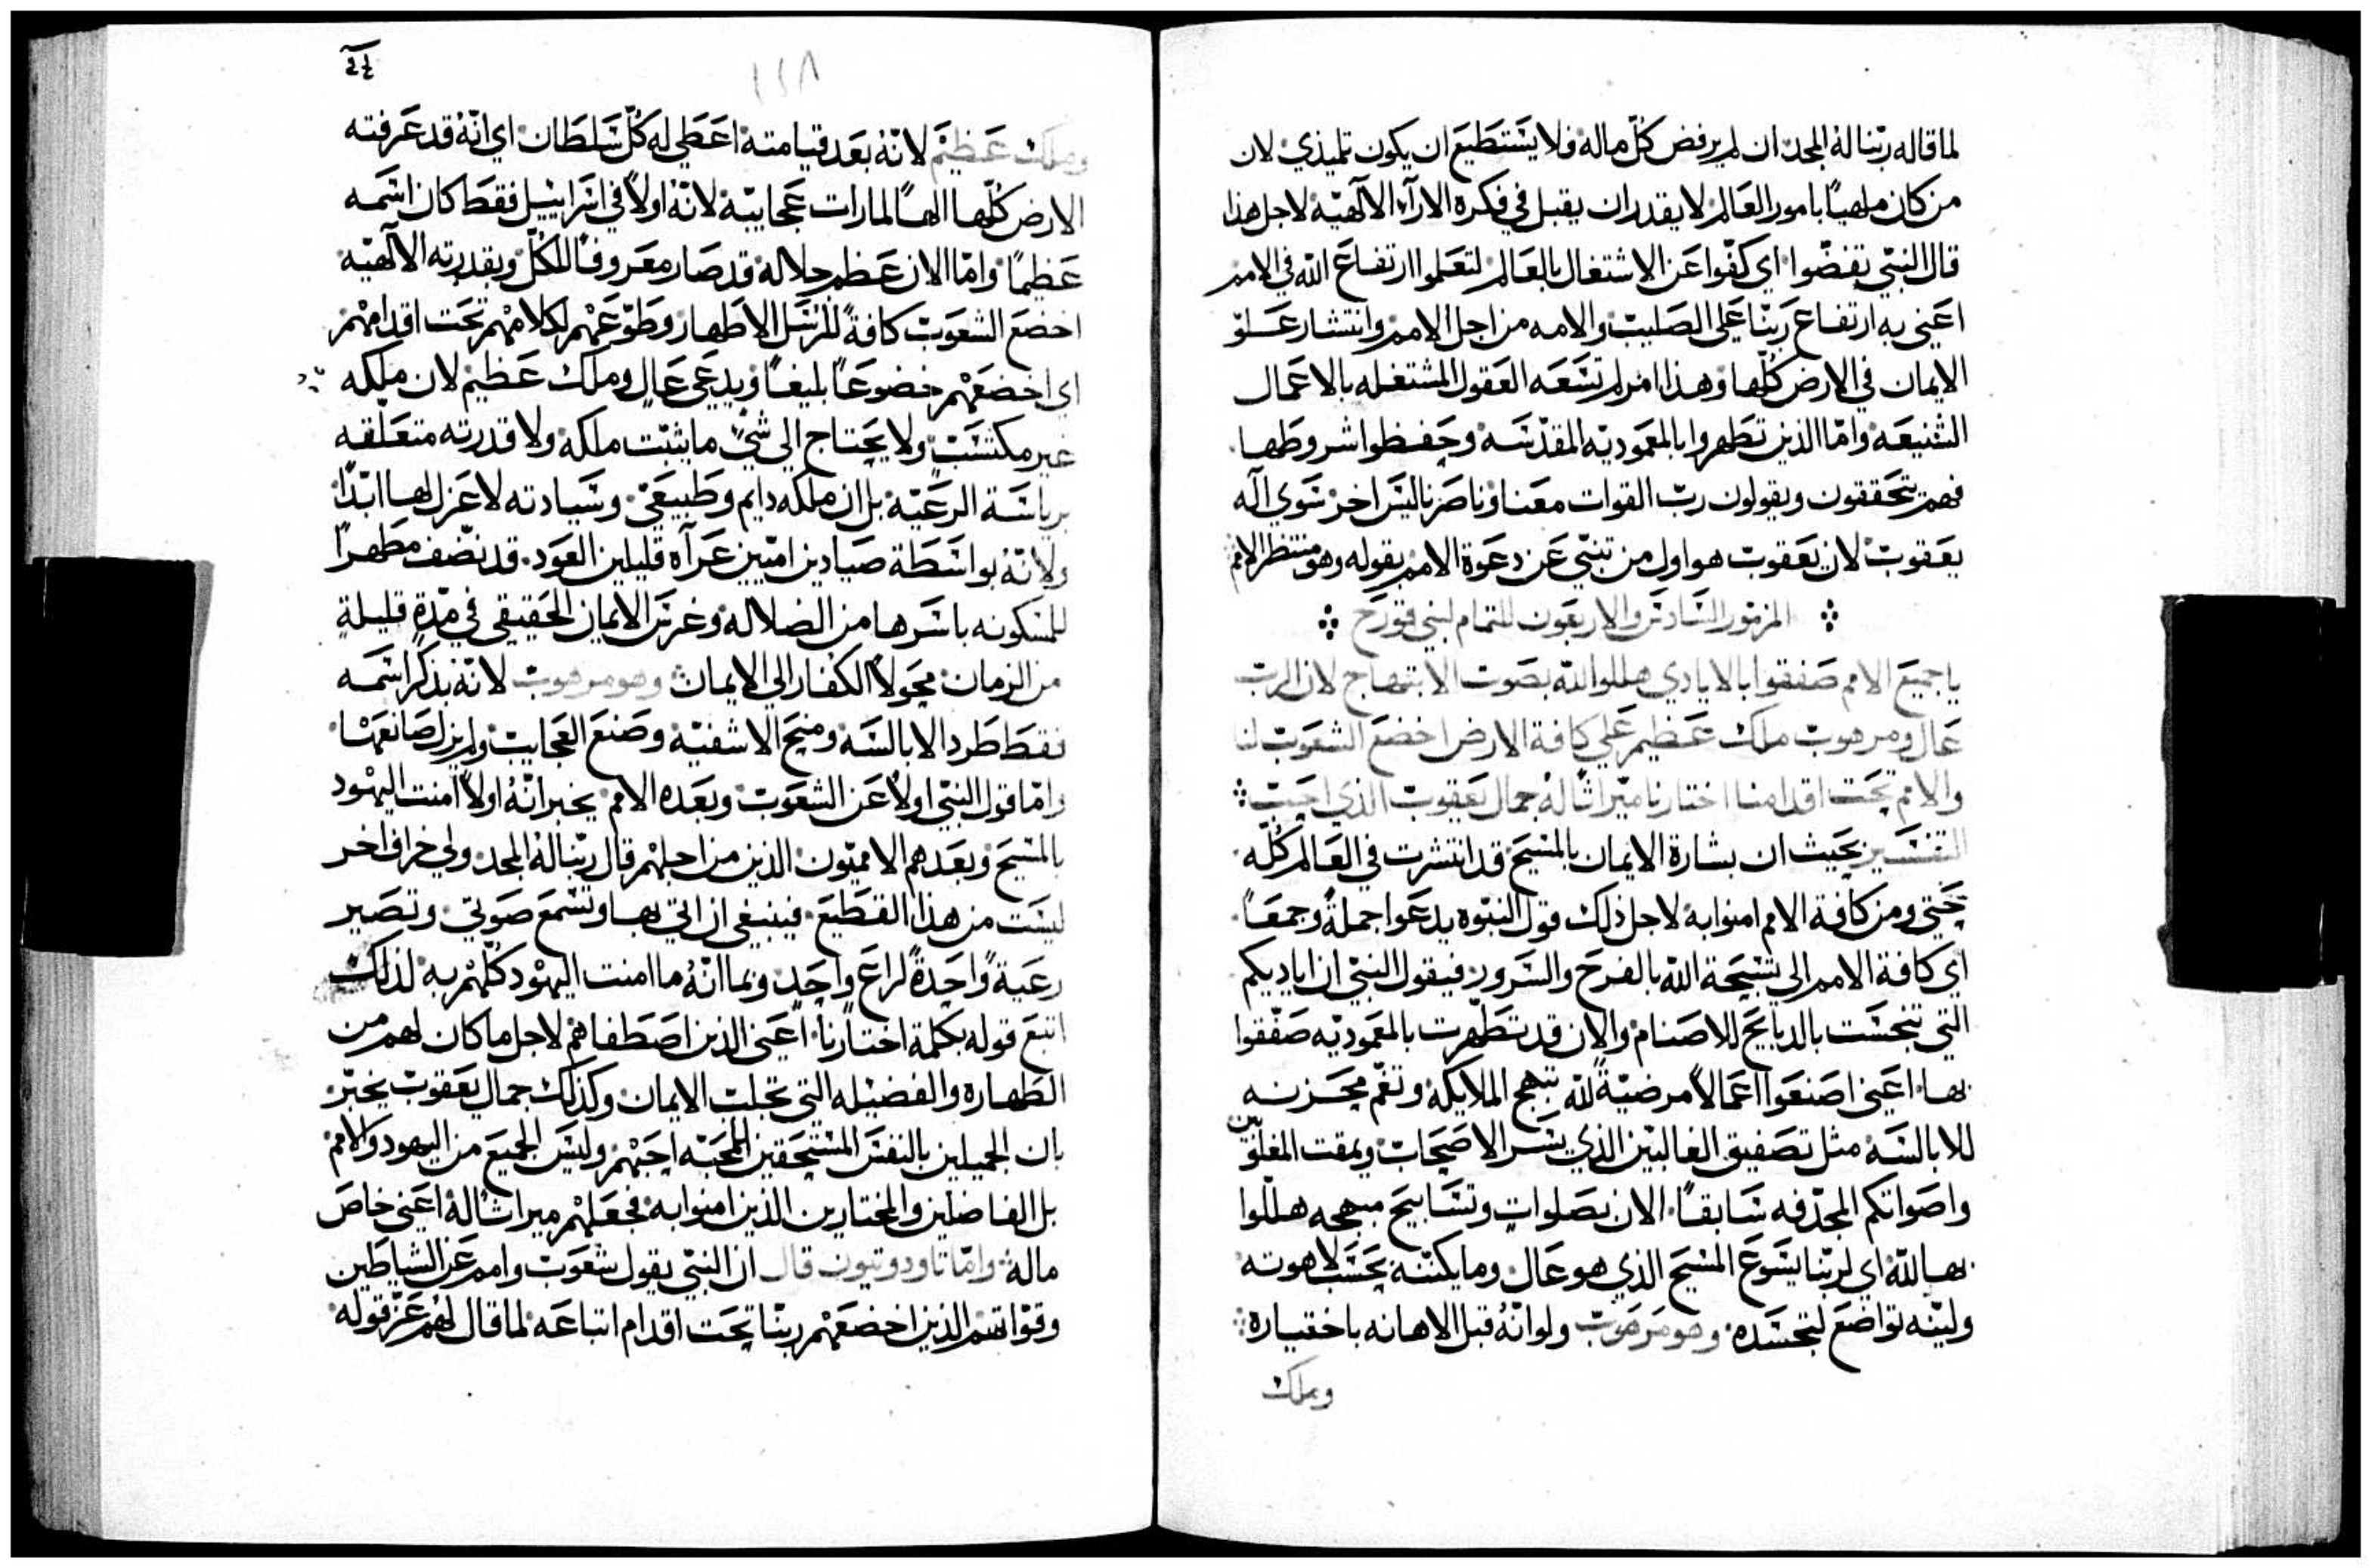 لما قاله ربّنا له المجد ان لم يرفض كلّ ماله فلا يستطيع ان يكون تلميذي لان
من كان ملهيًا بامور العالم لا يقدر ان يقبل في فكره الارآء الالهيّة لاجل هذا
قال النبّي تفضّوا اي كفّوا عن الاشتغال بالعالم لتعلموا ارتفاع الله في الامم
اعني به ارتفاع ربّنا على الصليب والامه من اجل الامم وانتشار علوّ
الايمان في الارض كلّها وهذا امر لم تسعه العقول المشتغله بالاعمال
الشنيعه وامّا الذين تطهروا بالمعموديّه المقدّسه وحفظوا شروطها
فهم يتحققون ويقولون ربّ القوات معنا وناصرنا ليس اخر سوي اله
يعقوب لان يعقوب هو اول من تنبّي عن دعوة الامم بقوله وهو منتظر الامم
المزمور السادس والاربعون للتمام لبني قورح
يا جميع الامم صفقوا بالايادي هللوا لله بصوت الابتهاج لان الرب
عال ومرهوب ملك عظيم علي كافة الارض اخضع الشعوب لنا
والامم تحت اقدامنا اختارنا ميراثًا له جمال يعقوب الذي احبّ
التفسير بحيث ان بشارة الايمان بالمسيح قد انتشرت في العالم كلّه
حتي ومن كافة الامم امنوا به لاجل ذلك قول النبوّه يدعوا جملةً وجمعًا
اي كافة الامم الي تسبحة الله بالفرح والسرور فيقول النبّي ان اياديكم
التي تنجست بالدبايح للاصنام والان قد تطهرت بالمعموديّه صفّقوا
بها اعني اصنعوا اعمالاً مرضيّةً لله تبهج الملايكه وتغم محزنه
للابالسه مثل تصفيق الغالبين الذي يسر الاصحاب ويمقت المغلوّبين
واصواتكم المجدّفه سابقًا الان بصلوات وتسابيح مبهجه هللّوا
بها لله اي لربّنا يسوع المسيح الذي هو عال وما يكننّه بحسب لاهوته
ولينّه تواضع لتجسّده وهو مرهوب ولو انّه قبل الاهانه باختياره
وملك
١٢٨
وملك عظيم لانّه بعد قيامته اعطي له كلّ سلطان اي انّه قد عرفته
الارض كلّها الهًا لما رات عجايبّه لانّه اولاً في اسراييل فقط كان اسمه
عظيمًا وامّا الان عظم جلاله قد صار معروفًا للكلّ وبقدرته الالهيّه
اخضع الشعوب كافةً للرسل الاطهار وطوّعهم لكلامهم تحت اقدامهم
اي اخضعهم خضوعًا بليغًا ويدعي عالٍ وملك عظيم لان ملكه
غير مكتسب ولا يحتاج الي شيء ما يثبت ملكه ولا قدرته متعلّقه
برياسة الرعيّه بل ان ملكه دايم وطبيعيّ وسيادته لا عزل لها ابدًا
ولانّه بواسطة صيادين اميّين عرآه قليلين العدد قد نضّف مطهرًا
للمسكونه باسرها من الضلاله وغرس الايمان الحقيقي في مدّةٍ قليلةٍ
من الزمان محوّلاً الكفار الي الايمان وهو مرهوب لانّه بذكر اسمه
فقط طرد الابالسه ومنح الاشفيّه وصنع العجايب ولم يزل صانعها
وامّا قول النبّي اولاً عن الشعوب وبعده الامم يخبر انّه اولاً امنت اليهود
بالمسيح وبعدهم الامميّون الذين من اجلهم قال ربّنا له المجد ولي خراف اخر
ليست من هذا القطيع فينبغي ان اتي بها وتسمع صوتي وتصير
رعيةً واحدةً لراعٍ واحدٍ وبما انّه ما امنت اليهود كلّهم به لذلك
اتبع قوله بكلمة اختارنا اعني الذين اصطفاهم لاجل ما كان لهم من
الطهاره والفضيله التي تجلب الايمان وكذلك جمال يعقوب يخبّر
بان الجميلين بالنفس المستحقين للمحبّه احبّهم وليس الجميع من اليهود والامم
بل الفاضلين والمختارين الذين امنوا به فجعلهم ميراثًا له اعني خاص
ماله وامّا تاودوتيون قال ان النبّي يقول شعوب وامم عن الشياطين
وقوّاتهم الذين اخضعهم ربّنا تحت اقدام اتباعه لما قال لهم عزّ قوله